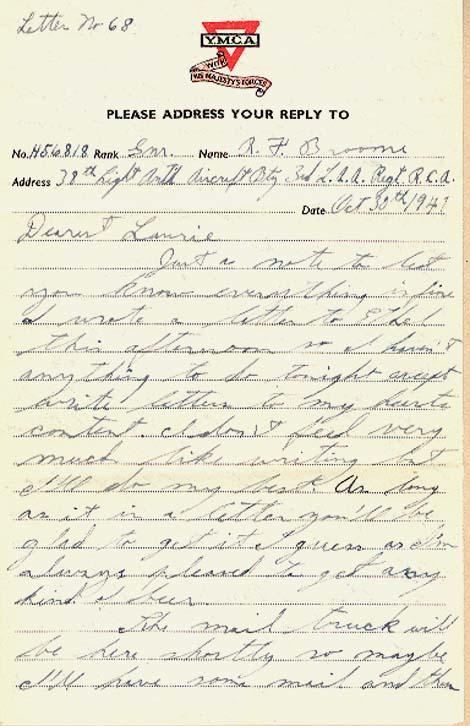 Letter No 68
Y.M.C.A
WITH
HIS MAJESTY'S FORCES
PLEASE ADDRESS YOUR REPLY TO
No. H56818 Rank Gnr. Name R. F. Broome
Address 38th Light Anti Aircraft Bty 3rd L.A.A. Regt. R.C.A.
Date Oct 30th 1941
Dearest Laurie
Just a note to let
you know everything is fine
I wrote a letter to Ethel
this afternoon so I haven't
anything to do tonight except
write letters to my hearts
content. I don't feel very
much like writing but
I'll do my best. As long
as it is a letter you'll be
glad to get it I guess as I'm
always pleased to get any
kind I
The mail truck will
be here shortly so maybe
I'll have some mail and then